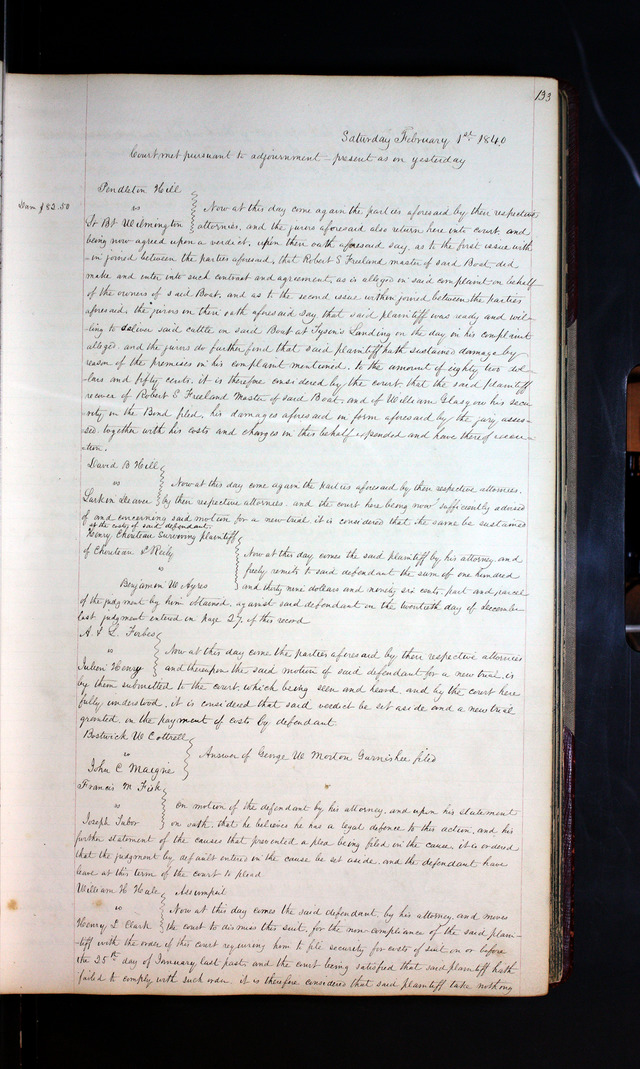 133
Saturday February 1st 1840
Court met pursuant to adjournment present as on yesterday
Pendleton Hill
vs
Dam $82.50
Now at this day come again the parties aforesaid by their respective
St Bt Wilmington attornies, and the jurors aforesaid also return here into court, and
being now agreed upon a verdict, upon their oath aforesaid say, as to the first issue with-
in joined between the parties aforesaid, that Robert S Freeland master of said Boat did
make and enter into such contract and agreement, as is alleged in said complaint on behalf
of the owners of said Boat, and as to the second issue within joined between the parties
aforesaid, the jurors on their oath aforesaid say, that said plaintiff was ready and wil-
ling to deliver said cattle on said Boat at Tyson's Landing on the day in his complaint
alleged. and the jurors do further find that said plaintiff hath sustained damage by
reason of the premises in his complaint mentioned, to the amount of eighty two dol-
lars and fifty cents. it is therefore considered by the court that the said plaintiff
recover of Robert S Freeland Master of said Boat, and of William Glasgow his secu-
rity in the Bond filed, his damages aforesaid in form aforesaid by the jury asses-
sed, together with his costs and charges in this behalf expended and have thereof execu-
tion.
David B Hill
vs
Now at this day come again the parties aforesaid by their respective attornies.
Larkin Deaver by their respective attornies. and the court here being now sufficiently advised
of and concerning said motion for a new trial, it is considered that the same be sustained
at the costs of said defendant
Henry Chouteau Surviving plaintiff
of Chouteau & Reily
Now at this day comes the said plaintiff by his attorney, and
vs
freely remits to said defendant the sum of one hundred
Benjamin W Ayres and thirty nine dollars and ninety six cents, part and parcel
of the judgment by him obtained, against said defendant on the twentieth day of december
last judgment entered in page 27, of this record
A. & L. Forbes
vs
Now at this day come the parties aforesaid by their respective attornies
Julien Henry and thereupon the said motion of said defendant for a new trial, is
by them submitted to the court, which being seen and heard and by the court here
fully understood, it is considered that said verdict be set aside and a new trial
granted, on the payment of costs by defendant
Bostwick W Cottrell
vs
Answer of George W Morton Garnishee filed
John C Maigne
Francis M Fisk
vs
On motion of the defendant by his attorney, and upon his statement
Joseph Tabor on oath, that he believes he has a legal defence to this action, and his
further statement of the causes that prevented a plea being filed in the cause, it is ordered
that the judgment by default entered in the cause be set aside, and the defendant have
leave at this term of the court to plead
William H Hale Assumpsit
vs
Now at this day comes the said defendant, by his attorney, and moves
Henry L Clark the court to dismiss this suit, for the non-compliance of the said plain-
tiff with the order of this court requiring him to file security for costs of suit on or before
the 25th day of January last past, and the court being satisfied that said plaintiff hath
failed to comply with such order, it is therefore considered that said plaintiff take nothing